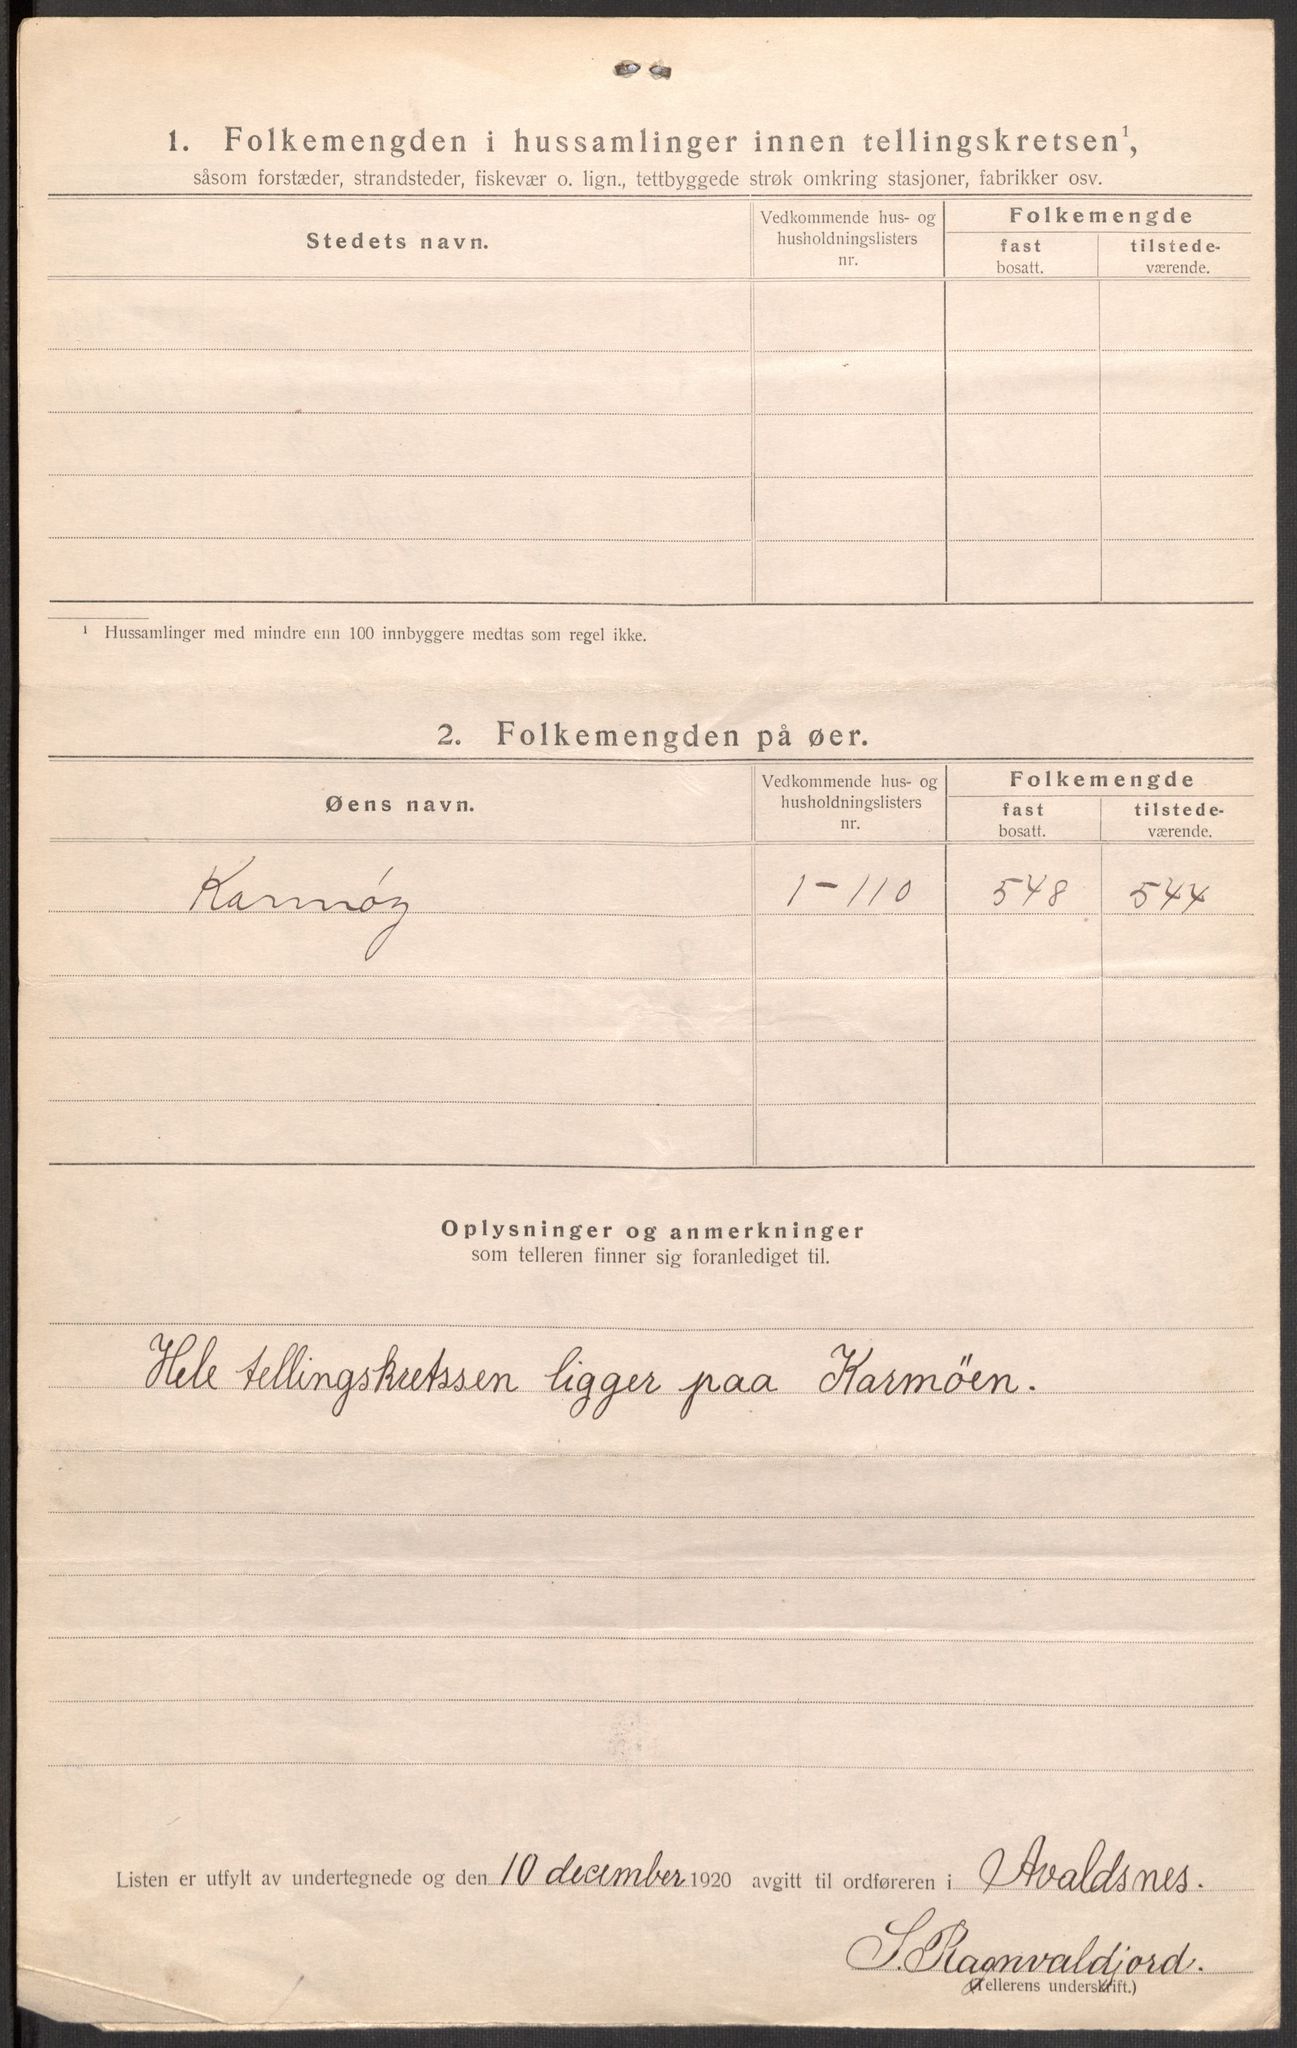 1. Folkemengden i hussamlinger innen tellingskretsen¹,
såsom forstæder, strandsteder, fiskevær o. lign., tettbyggede strøk omkring stasjoner, fabrikker osv.
Stedets navn.
Vedkommende hus- og
husholdningslisters
nr.
Folkemengde
fast
bosatt.
tilstede-
værende.
¹ Hussamlinger med mindre enn 100 innbyggere medtas som regel ikke.
2. Folkemengden på øer.
Øens navn.
Vedkommende hus- og
husholdningslisters
nr.
Folkemengde
fast
bosatt.
tilstede-
værende.
Karmøy 1-110 548 544
Oplysninger og anmerkninger
som telleren finner sig foranlediget til.
Hele tellingskretssen ligger paa Karmöen.
Listen er utfylt av undertegnede og den 10 december 1920 avgitt til ordføreren i Avaldsnes.
S. Ragnvaldjord.
(Tellerens underskrift.)